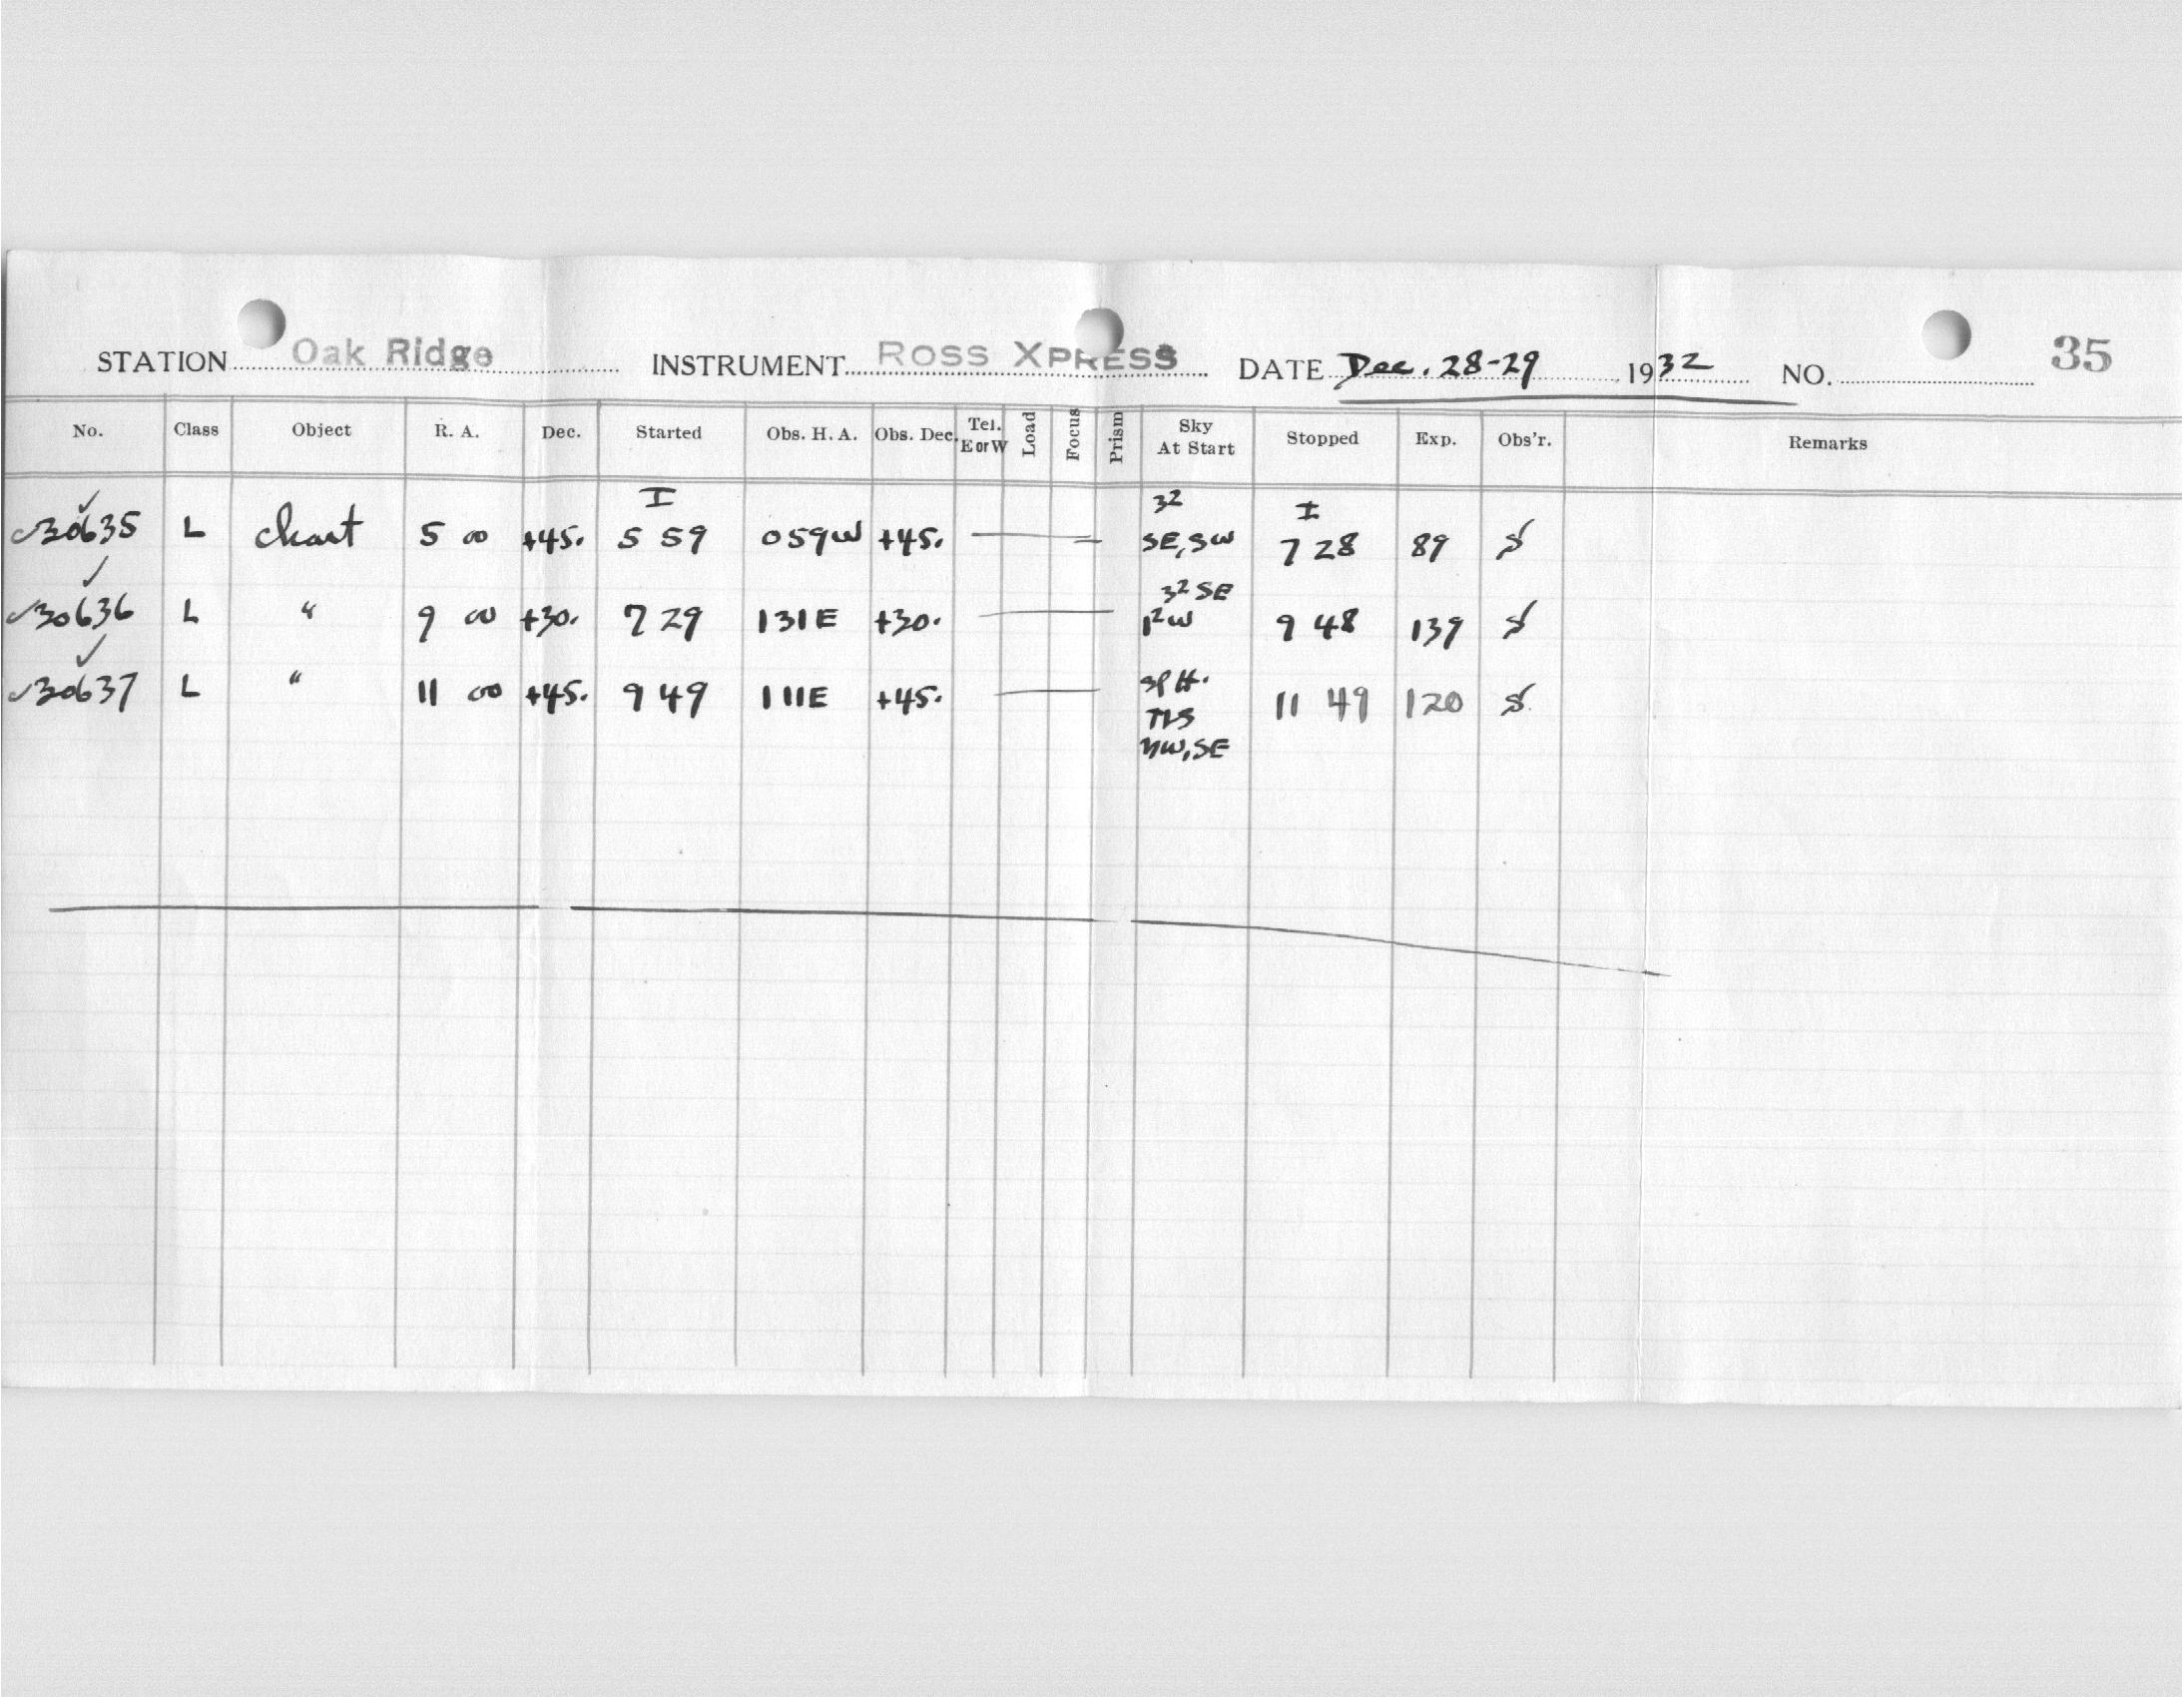 STATION Oak Ridge INSTRUMENT ROSS XPRESS DATE Dec. 28-29 1932 NO. 35
No. Class Object R. A. Dec. Started Obs. H. A. Obs. Dec. Tel. E or W Load Focus Prism Sky At Start Stopped Exp. Obs'r. Remarks
I 3² I
30635 L chart 5 00 +45. 5 59 059W +45. SE, SW 7 28 89 S
3² SE
30636 L " 9 00 +30. 7 29 131E +30. 1² W 9 48 139 S
30637 L " 11 00 +45. 9 49 111E +45. 11 49 120 S
NW, SE